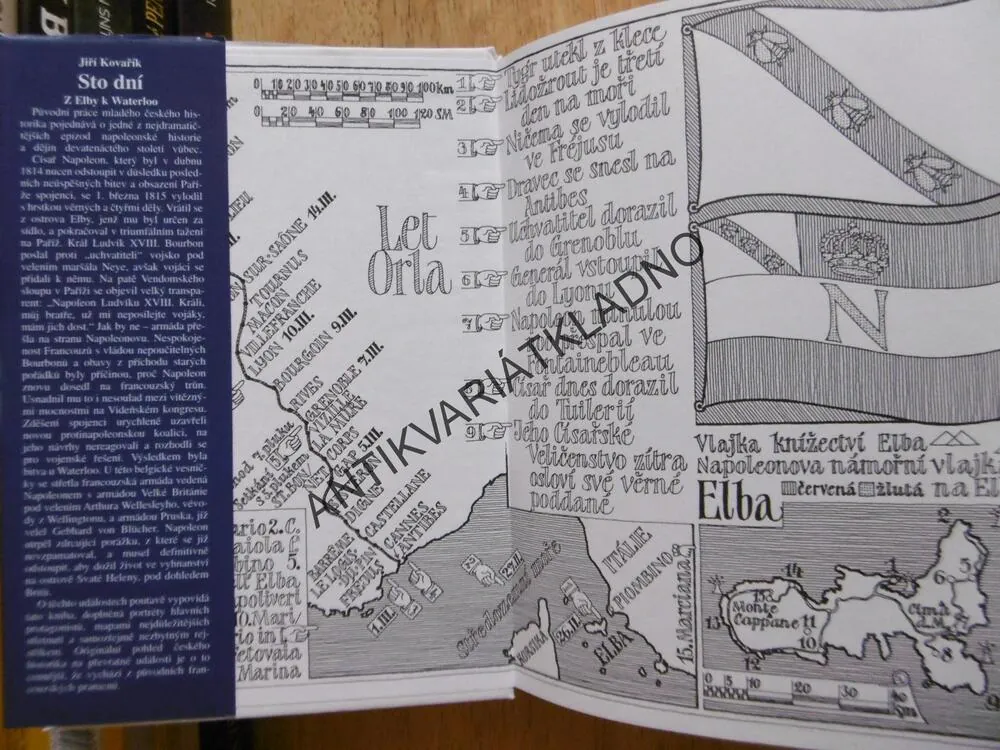 Jiří Kovařík
Sto dní
Z Elby k Waterloo
Původní práce mladého českého his-
torika pojednává o jedné z nejdramatič-
tějších epizod napoleonské historie
a dějin devatenáctého století vůbec.
Císař Napoleon, který byl v dubnu
1814 nucen odstoupit v důsledku posled-
ních neúspěšných bitev a obsazení Paří-
že spojenci, se 1. března 1815 vylodil
s hrstkou věrných a čtyřmi děly. Vrátil se
z ostrova Elby, jenž mu byl určen za
sídlo, a pokračoval v triumfálním tažení
na Paříž. Král Ludvík XVIII. Bourbon
poslal proti „uchvatiteli" vojsko pod
velením maršála Neye, avšak vojáci se
přidali k němu. Na patě Vendomského
sloupu v Paříži se objevil velký transpa-
rent: „Napoleon Ludvíku XVIII. Králi,
můj bratře, už mi neposílejte vojáky,
mám jich dost." Jak by ne – armáda pře-
šla na stranu Napoleonovu. Nespokoje-
nost Francouzů s vládou nepoučitelných
Bourbonů a obavy z příchodu starých
pořádků byly příčinou, proč Napoleon
znovu dosedl na francouzský trůn.
Usnadnil mu to i nesoulad mezi vítězný-
mi mocnostmi na Vídeňském kongresu.
Zděšení spojenci urychleně uzavřeli
novou protinapoleonskou koalici, na
jeho návrhy nereagovali a rozhodli se
pro vojenské řešení. Výsledkem byla
bitva u Waterloo. U této belgické vesnič-
ky se střetla francouzská armáda vedená
Napoleonem s armádou Velké Británie
pod velením Arthura Wellesleyho, vévo-
dy z Wellingtonu, a armádou Pruska, jíž
velel Gebhard von Blücher. Napoleon
utrpěl zdrcující porážku, z které se již
nevzpamatoval, a musel definitivně
odstoupit, aby dožil život ve vyhnanství
na ostrově Svaté Heleny, pod dohledem
Britů.
O těchto událostech poutavě vypovídá
tato kniha, doplněná portréty hlavních
protagonistů, mapami nejdůležitějších
střetnutí a samozřejmě nezbytným rej-
stříkem. Originální pohled českého
historika na převratné události je o to
cennější, že vychází z původních fran-
couzských pramenů.
0 10 20 30 40 50 60 70 80 90 100 km
0 20 40 60 80 100 120 SM
Let
Orla
SUR-SAÔNE 14.III.
TOURNUS
MACON
VILLEFRANCHE
LYON 10.III.
BOURGOIN 9.III.
RIVES
GRENOBLE 7.III.
VIZILLE
LA MURE
CORPS
GAP 5.III.
DIGNE
CASTELLANE
BARRÊME
CANNES
ANTIBES
FRÉJUS
1.III.
Středozemní moře
27.II.
26.II.
KORSIKA
ELBA
ITÁLIE
PIOMBINO
15. Marciana
1 Tygr utekl z klece
2 Lidožrout je třetí
den na moři
3 Ničema se vylodil
ve Fréjusu
4 Dravec se snesl na
Antibes
5 Uchvatitel dorazil
do Grenoblu
6 Generál vstoupil
do Lyonu
7 Napoleon minulou
noc spal ve
Fontainebleau
Císař dnes dorazil
do Tuilerií
9 Jeho Císařské
Veličenstvo zítra
osloví své věrné
poddané
N
Vlajka knížectví Elba
Napoleonova námořní vlajk
Elba
červená žlutá na El
2
14
6
5
13
Monte
Cappane
11
10
12
Cima
d. M.
7
8
9
0 5 10 20 30 40
Sm
ANTIKVARIÁTKLADNO